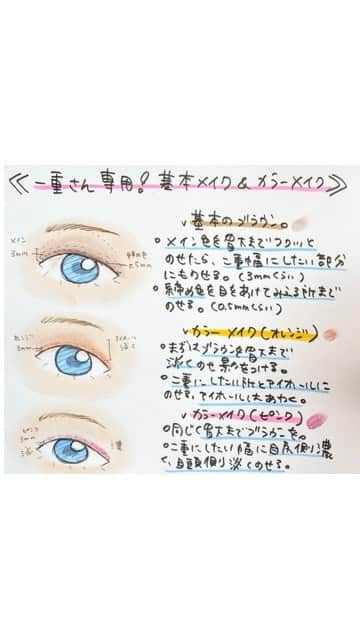 ≪一重さん専用！基本メイク＆カラーメイク≫
∨基本のブラウン。
メイン色を眉太までフワッと
のせたら、二重幅にしたい部分
にものせる。(3mmくらい)
締め色を目をあけてみえる所まで
のせる。(0.5mmくらい)
メイン
3mm
締め色
0.5mm
∨カラーメイク(オレンジ)
まずはブラウンを眉太まで
淡くのせ影をつける。
二重にしたい所とアイホールに
のせる。アイホールはあわく。
オレンジ
3mm
アイホール
淡く
∨カラーメイク(ピンク)
同じく眉太までブラウンを。
二重にしたい幅に目尻側濃
く、目頭側淡くのせる。
ピンク
3mm
淡
濃